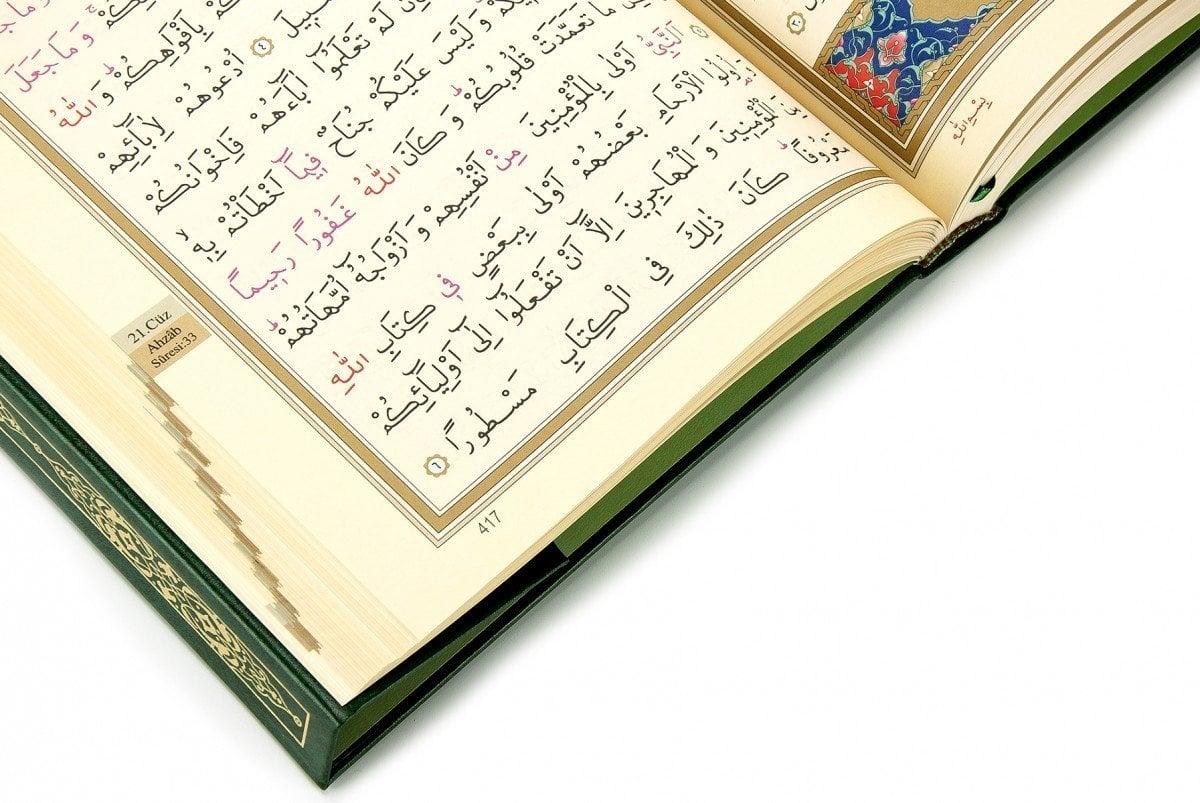 وَ مَا جَعَلَ
بِاَفْوَاهِكُمْ وَ اللّٰهُ
٤ اُدْعُوهُمْ لِاٰبَٓائِهِمْ
لَمْ تَعْلَمُٓوا اٰبَٓاءَهُمْ فَاِخْوَانُكُمْ
وَ لَيْسَ عَلَيْكُمْ جُنَاحٌ فِيمَٓا اَخْطَأْتُمْ بِهِ
مَا تَعَمَّدَتْ قُلُوبُكُمْ وَ كَانَ اللّٰهُ غَفُورًا رَحِيمًا
٥ اَلنَّبِيُّ اَوْلٰى بِالْمُؤْمِنِينَ مِنْ اَنْفُسِهِمْ وَ اَزْوَاجُهُٓ اُمَّهَاتُهُمْ
وَاُولُوا الْاَرْحَامِ بَعْضُهُمْ اَوْلٰى بِبَعْضٍ فِي كِتَابِ اللّٰهِ
مِنَ الْمُؤْمِنِينَ وَ الْمُهَاجِرِينَ اِلَّٓا اَنْ تَفْعَلُٓوا اِلٰٓى اَوْلِيَٓائِكُمْ
مَعْرُوفًا كَانَ ذٰلِكَ فِي الْكِتَابِ مَسْطُورًا ٦
417
21.Cüz
Ahzâb
Sûresi:33
بِسْمِ اللّٰهِ